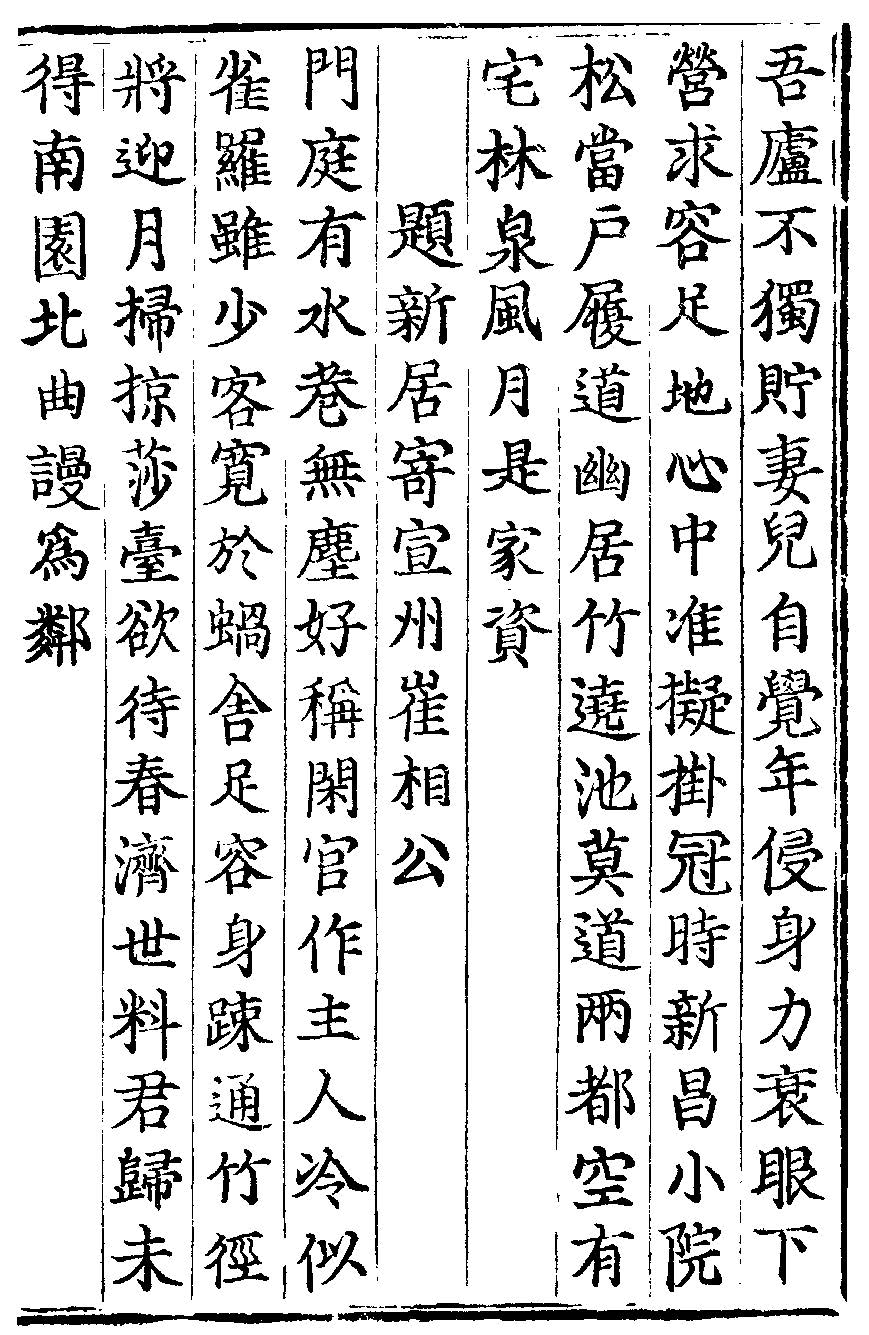 吾廬不獨貯妻兒自覺年侵身力衰眼下
營求容足地心中准擬掛冠時新昌小院
松當戶履道幽居竹遶池莫道兩都空有
宅林泉風月是家資
題新居寄宣州崔相公
門庭有水巷無塵好稱閑官作主人冷似
雀羅雖少客寛於蝸舎足容身踈通竹徑
將迎月掃掠莎臺欲待春濟世料君歸未
得南園北曲謾爲鄰